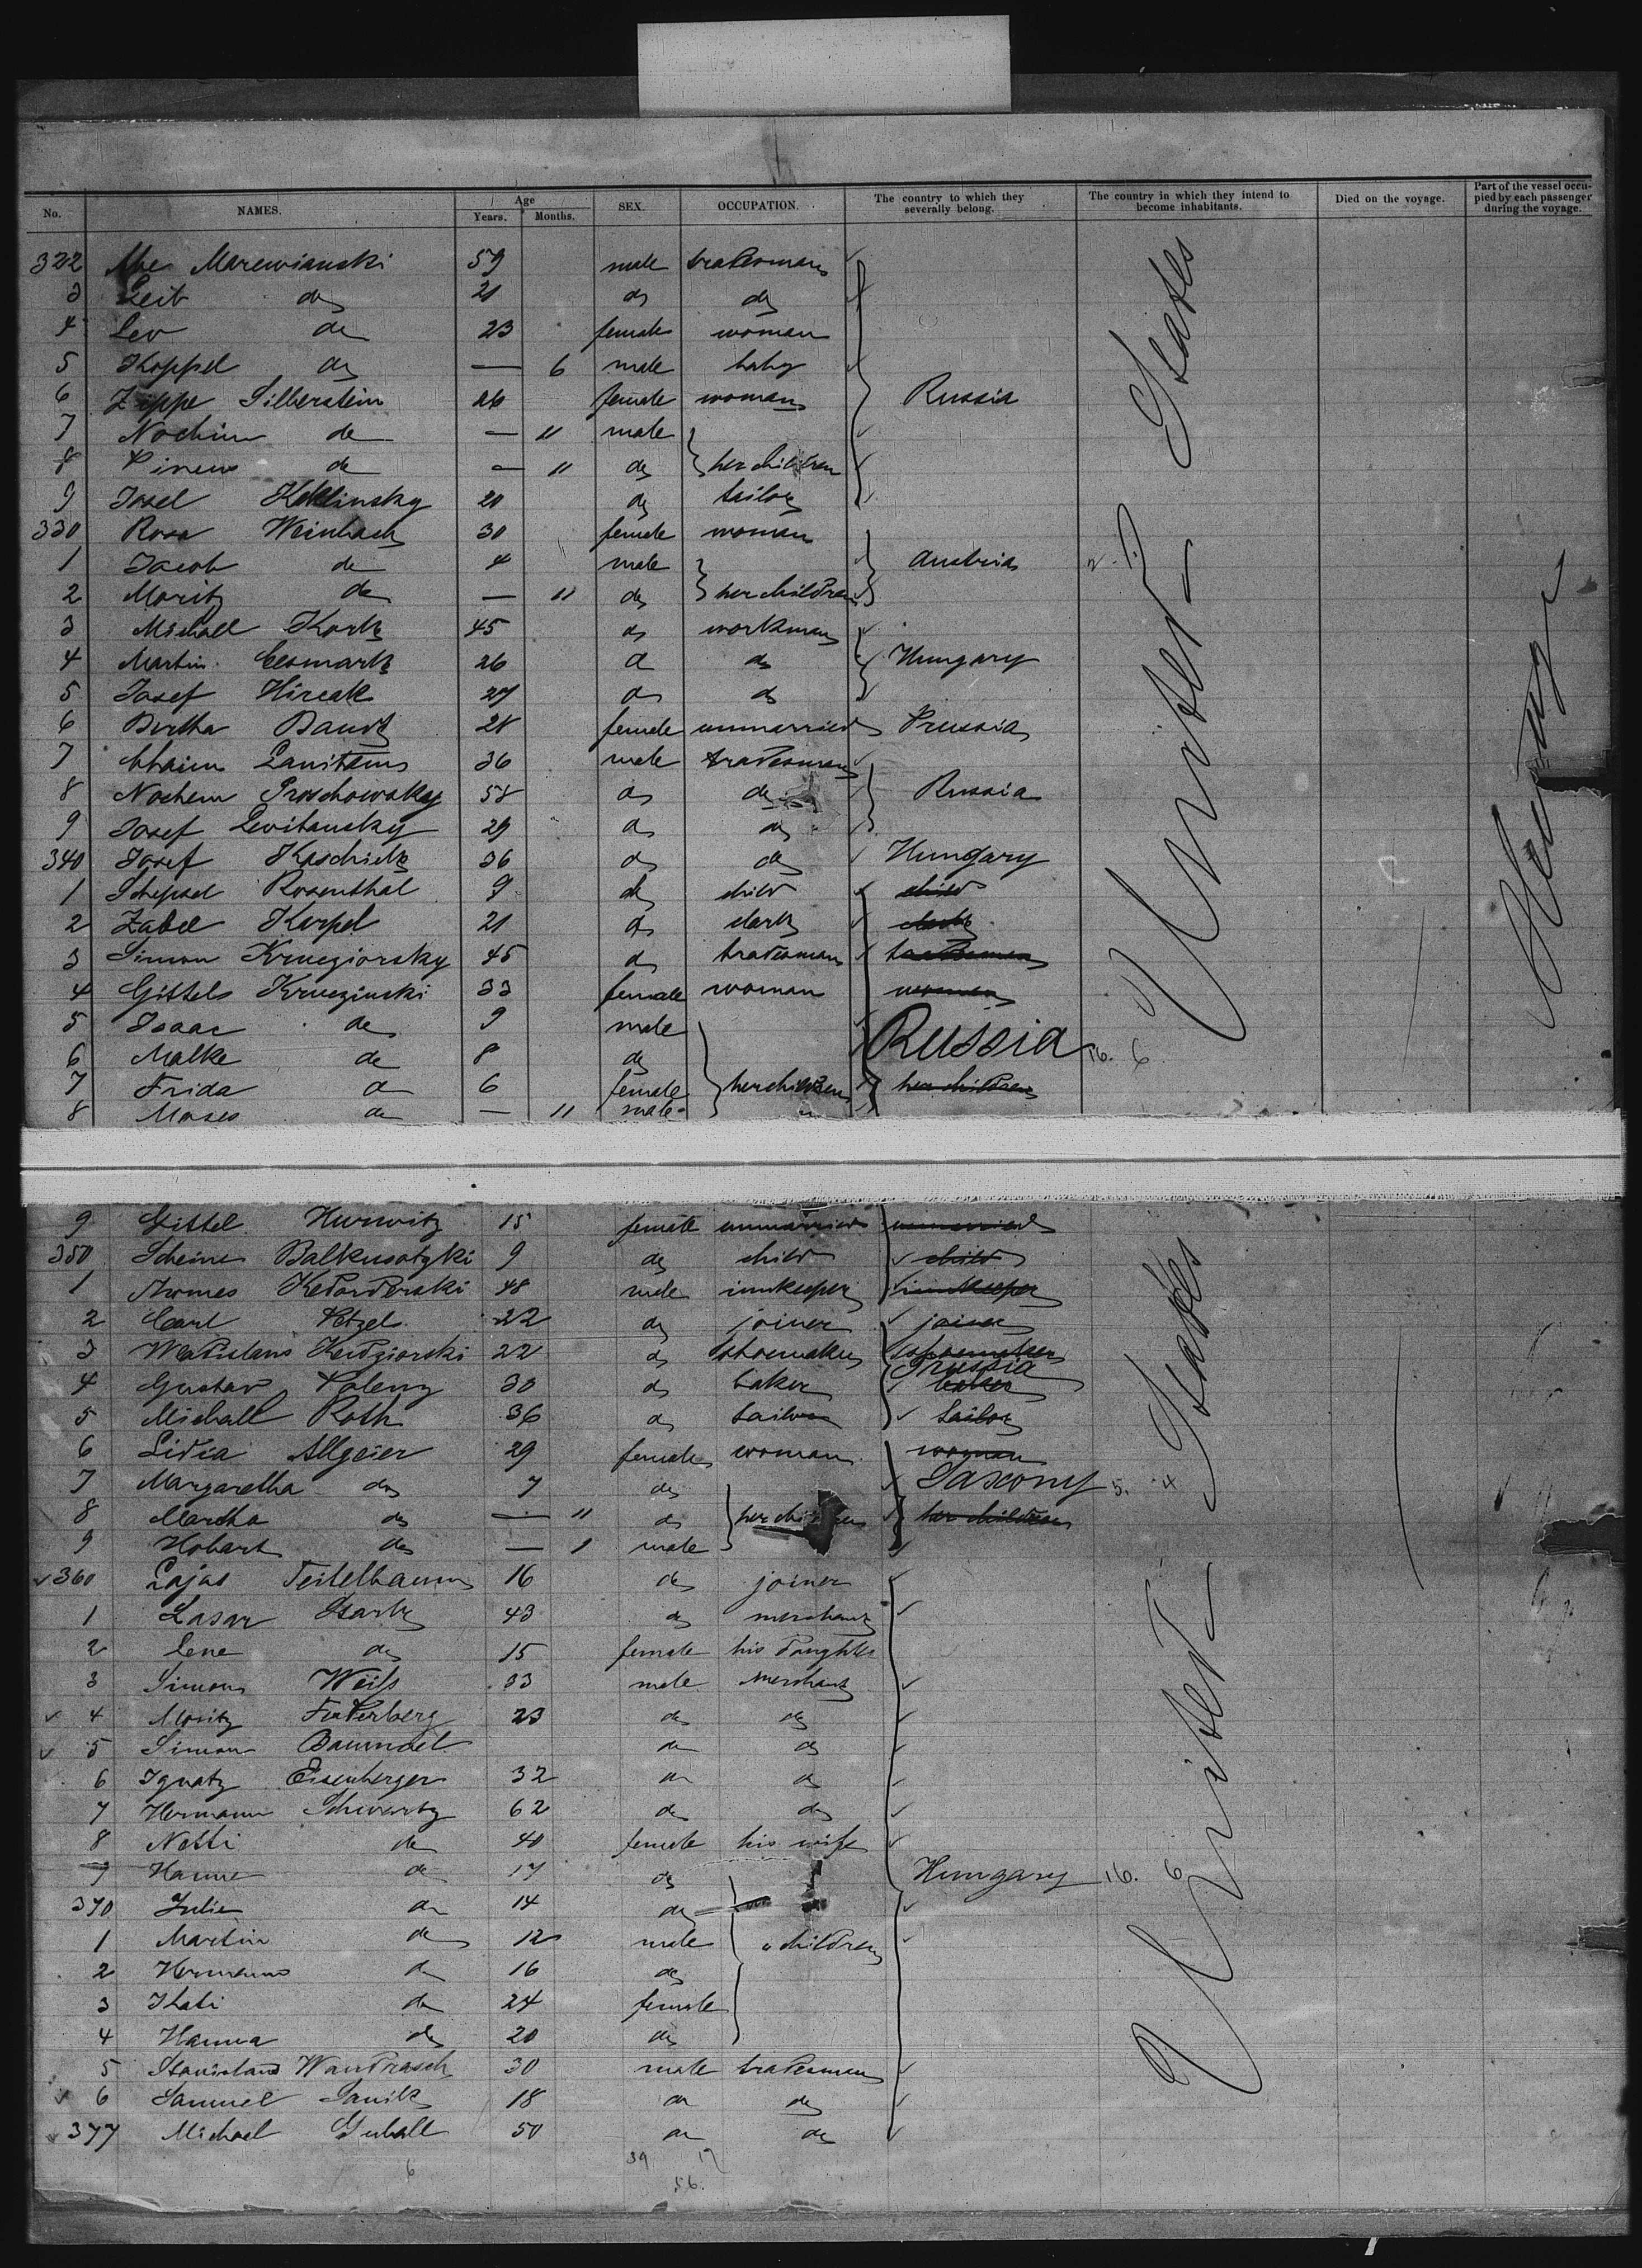 No. NAMES. Age Years. Months. SEX. OCCUPATION. The country to which they severally belong. The country in which they intend to become inhabitants. Died on the voyage. Part of the vessel occupied by each passenger during the voyage.
322 Abe Marewianski 59 male tradesman
3 Leib do 21 do do
4 Lev do 23 female woman
5 Koppel do — 6 male baby
6 Zippe Silberstein 26 female woman Russia
7 Nochim do — 11 male
8 Pineus do — 11 do her children
9 Josel 20 do tailor
330 Rosa Weinbach 30 female woman
1 Jacob do 4 male Austria
2 Moritz do — 11 do her children
3 Michall Kork 45 do workman
4 Martin 26 do do Hungary
5 Josef Hireak 27 do do
6 Bertha Bandt 28 female unmarried Prussia
7 Chaim 36 male tradesman
8 Nochem Proschowsky 58 do do Russia
9 Josef Levitansky 29 do do
340 Josef Koschiek 36 do do Hungary
1 Schepsel Rosenthal 9 do child child
2 Zabel Kerpel 21 do clerk clerk
3 Simon Kruegiorsky 45 do tradesman tradesman
4 Gittels Krueginski 33 female woman woman
5 Isaac do 9 male Russia
6 Malke do 8 do
7 Frida do 6 female her children her children
8 Moses do — 11 male
United States
Steerage
9 Gittel Hurwitz 15 female unmarried unmarried
350 Scheine 9 do child child
1 48 male innkeeper innkeeper
2 Carl Petzel 22 do joiner joiner
3 Wladislaus Kerdziorski 22 do shoemaker shoemaker
Prussia
4 Gustav Polenz 30 do baker baker
5 Michall Roth 36 do tailor tailor
6 Lidia Allgeier 29 female woman woman
7 Margaretha do 7 do Saxony 5. 4
8 Martha do — 11 do her children her children
9 Hobart do — 1 male
360 Lajas Teitelbaum 16 do joiner
1 Lasar 43 do merchant
2 Lene do 15 female his daughter
3 Simon Weiss 33 male merchant
4 Moritz 23 do do
5 Simon Baumoel do do
6 Ignatz Eisenberger 32 do do
7 Hermann Schwartz 62 do do
8 Netti do 40 female his wife
9 Hanne do 17 do Hungary 16. 6
370 Julie do 14 do
1 Martin do 12 male children
2 Hermann do 16 do
3 Kati do 24 female
4 Hanna do 20 do
5 Stanislaus Wandrasch 30 male tradesman
6 Samuel 18 do do
377 Michael 50 do do
United States
39 17
56.
6